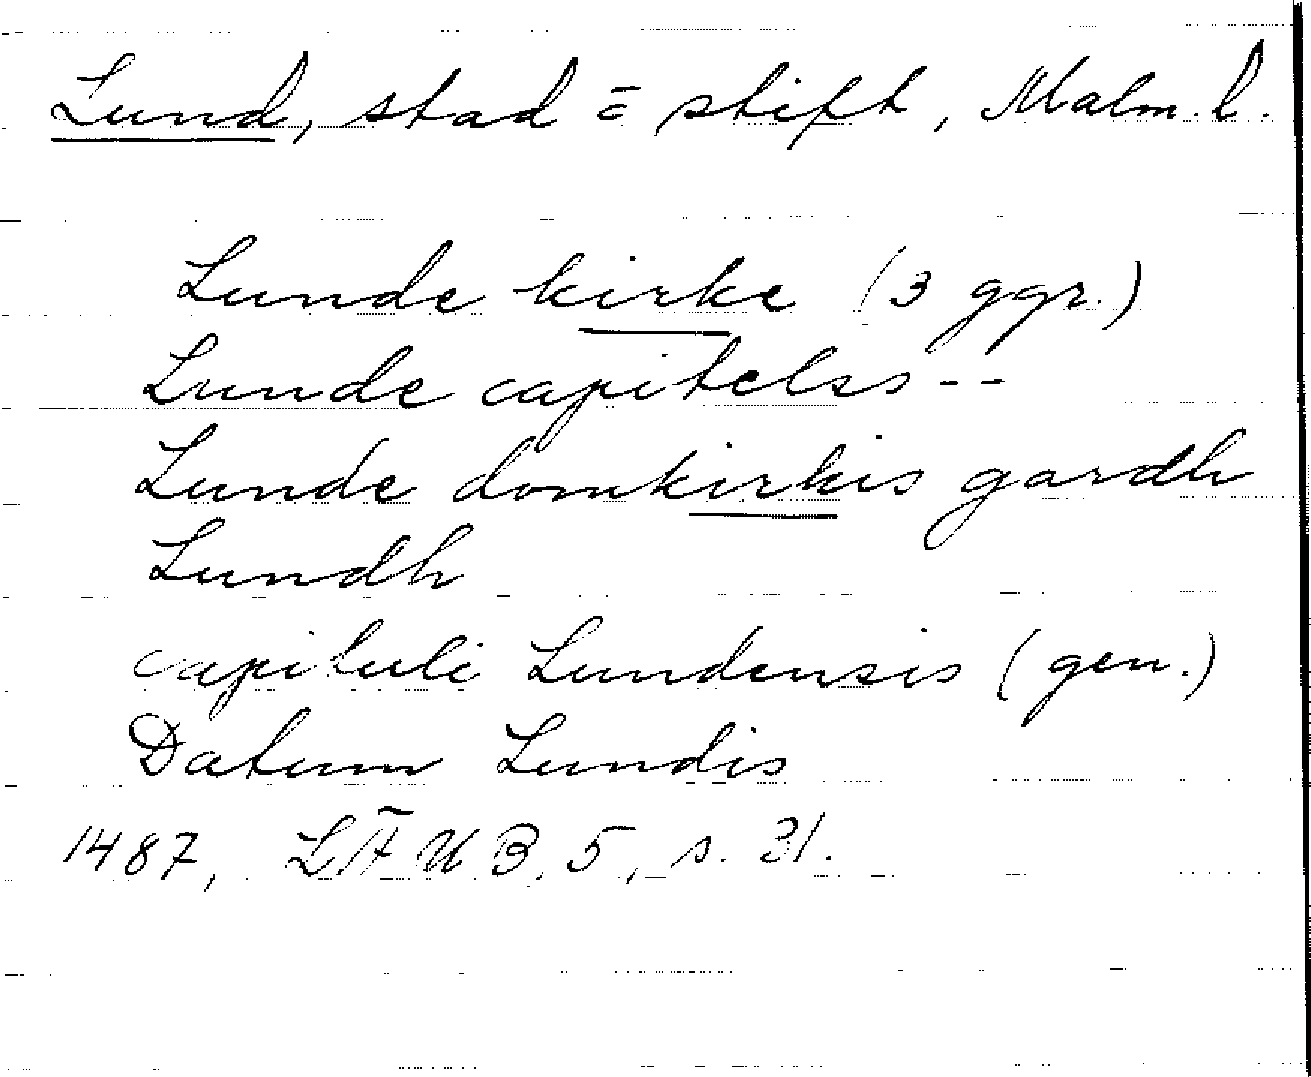 Lund, stad = stift, Malm. l.
Lunde kirke (3 ggr.)
Lunde capitelss--
Lunde domkirkis gardh
Lundh
capituli Lundensis (gen.)
Datum Lundis
1487, LÄUB, 5, s. 31.